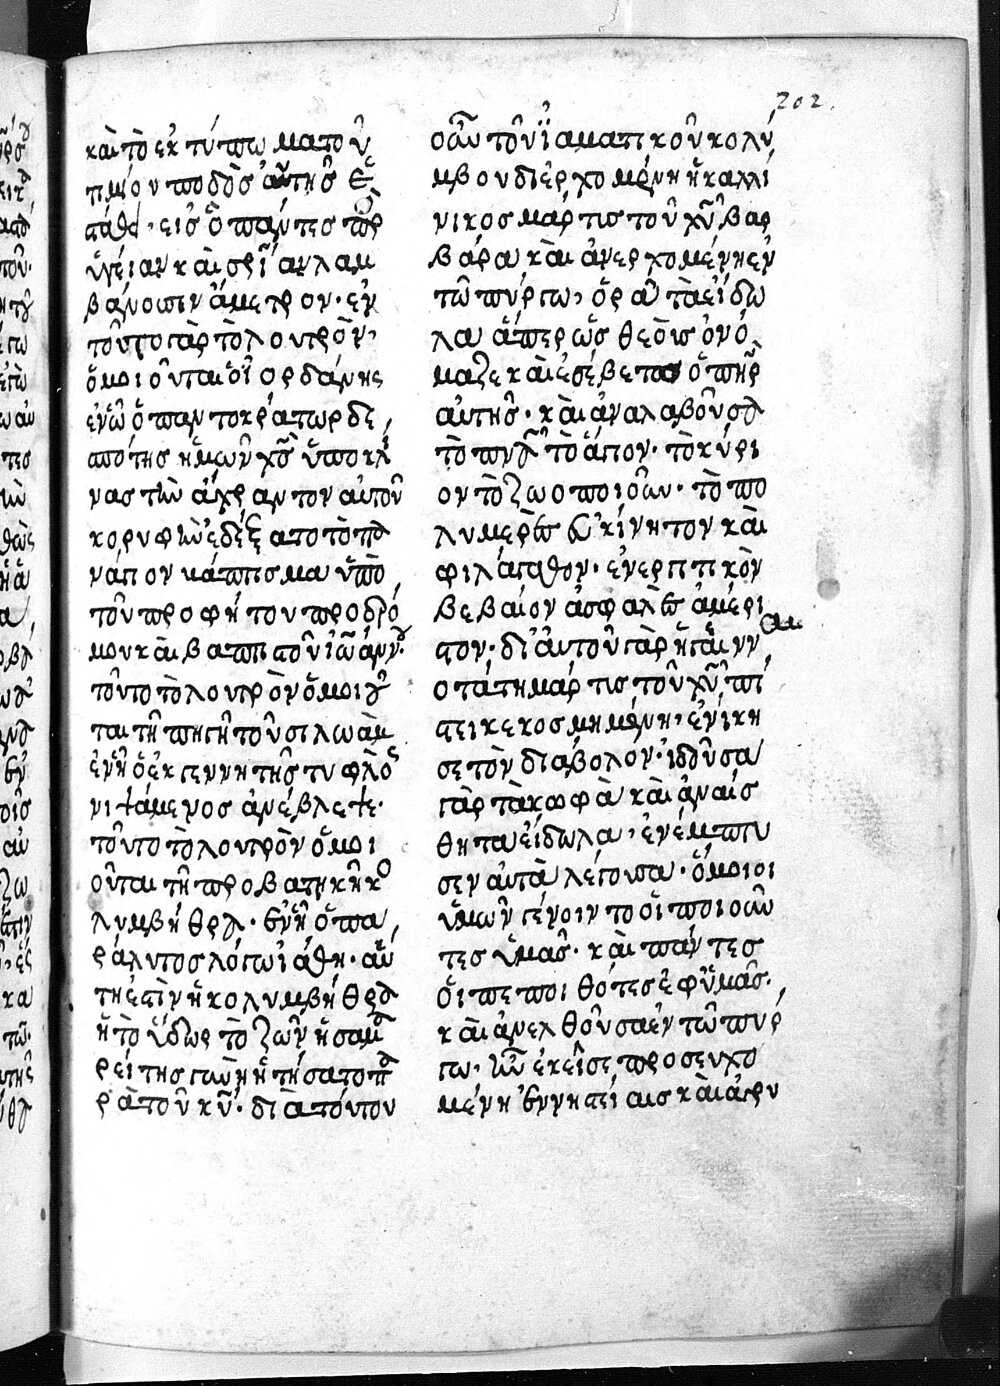 202.
καὶ τὸ ἐκτύπωμα τοῦ
τιμίου ποδὸς αὐτῆς ἐ
εἰς ὃ πάντες
ὑγείαν καὶ λαμ
βάνουσιν ἄμετρον· ἐν
τοῦτο γὰρ τὸ λουτρὸν,
ὁμοιοῦνται ὁ ἰορδάνης
ἐν ᾧ ὁ παντοκράτωρ δε
σπότης ἡμῶν χς ὑποκλί
νας τὴν ἄχραντον αὐτοῦ
κορυφὴν ἐδέξατο τὸ πα
νάγιον βάπτισμα ὑπὸ
τοῦ προφήτου προδρό
μου καὶ βαπτιστοῦ ἰωάννου·
τοῦτο τὸ λουτρὸν ὁμοιοῦ
ται τῇ πηγῇ τοῦ σιλωὰμ
ἐν ᾗ ὁ ἐκ γεννητῆς τυφλὸς
νιψάμενος ἀνέβλεψε·
τοῦτο τὸ λουτρὸν ὁμοι
οῦται τῇ προβατικῇ κο
λυμβήθρα· ἐν ᾗ ὁ πα
ράλυτος λόγω ἰάθη· αὕ
τη ἐστὶν ἡ κολυμβήθρα
ἢ τὸ ὕδωρ τὸ ζῶν ἡ σαμα
ρείτης γυνὴ ᾐτήσατο πα
ρὰ τοῦ κυ· διὰ τούτου
οὖν τοῦ ἰαματικοῦ κολυ
μβου διερχομένη ἡ καλλί
νικος μάρτις τοῦ χυ βαρ
βάρα καὶ ἀνερχομένη ἐν
τῶ πύργω, ὁρᾶ τὰ εἴδω
λα ἅπερ ὡς θεοῖς ὀνό
μαζε καὶ ἐσέβετο ὁ πηρ
αὐτῆς· καὶ ἀναλαβοῦσα
τὸ πνα τὸ ἅγιον· τὸ κύρι
ον τὸ ζωοποιοῦν· τὸ πο
λυμερὲς εὐκίνητον καὶ
φιλάγαθον· ἐνεργητικὸν
βεβαίον ἀσφαλὲς ἀμέρι
στον· δι' αὐτοῦ γὰρ ἡ γενν
αι
οτάτη μάρτις τοῦ χυ πί
στει κεκοσμημένη, ἐνίκη
σε τὸν διάβολον· ἰδοῦσα
γὰρ τὰ κωφὰ καὶ ἀναίσ
θητα εἴδωλα, ἐνέμπτυ
σεν αὐτὰ λέγουσα· ὅμοιοι
ὑμῶν γένοιντο οἱ ποιοῦν
τες ὑμᾶς· καὶ πάντες
οἱ πεποιθότες ἐφ' ὑμᾶς·
καὶ ἀνελθοῦσα ἐν τῶ πύρ
γω, ἦν ἐκεῖσε προσευχο
μένη ἐν νηστείαις καὶ ἀγρυ